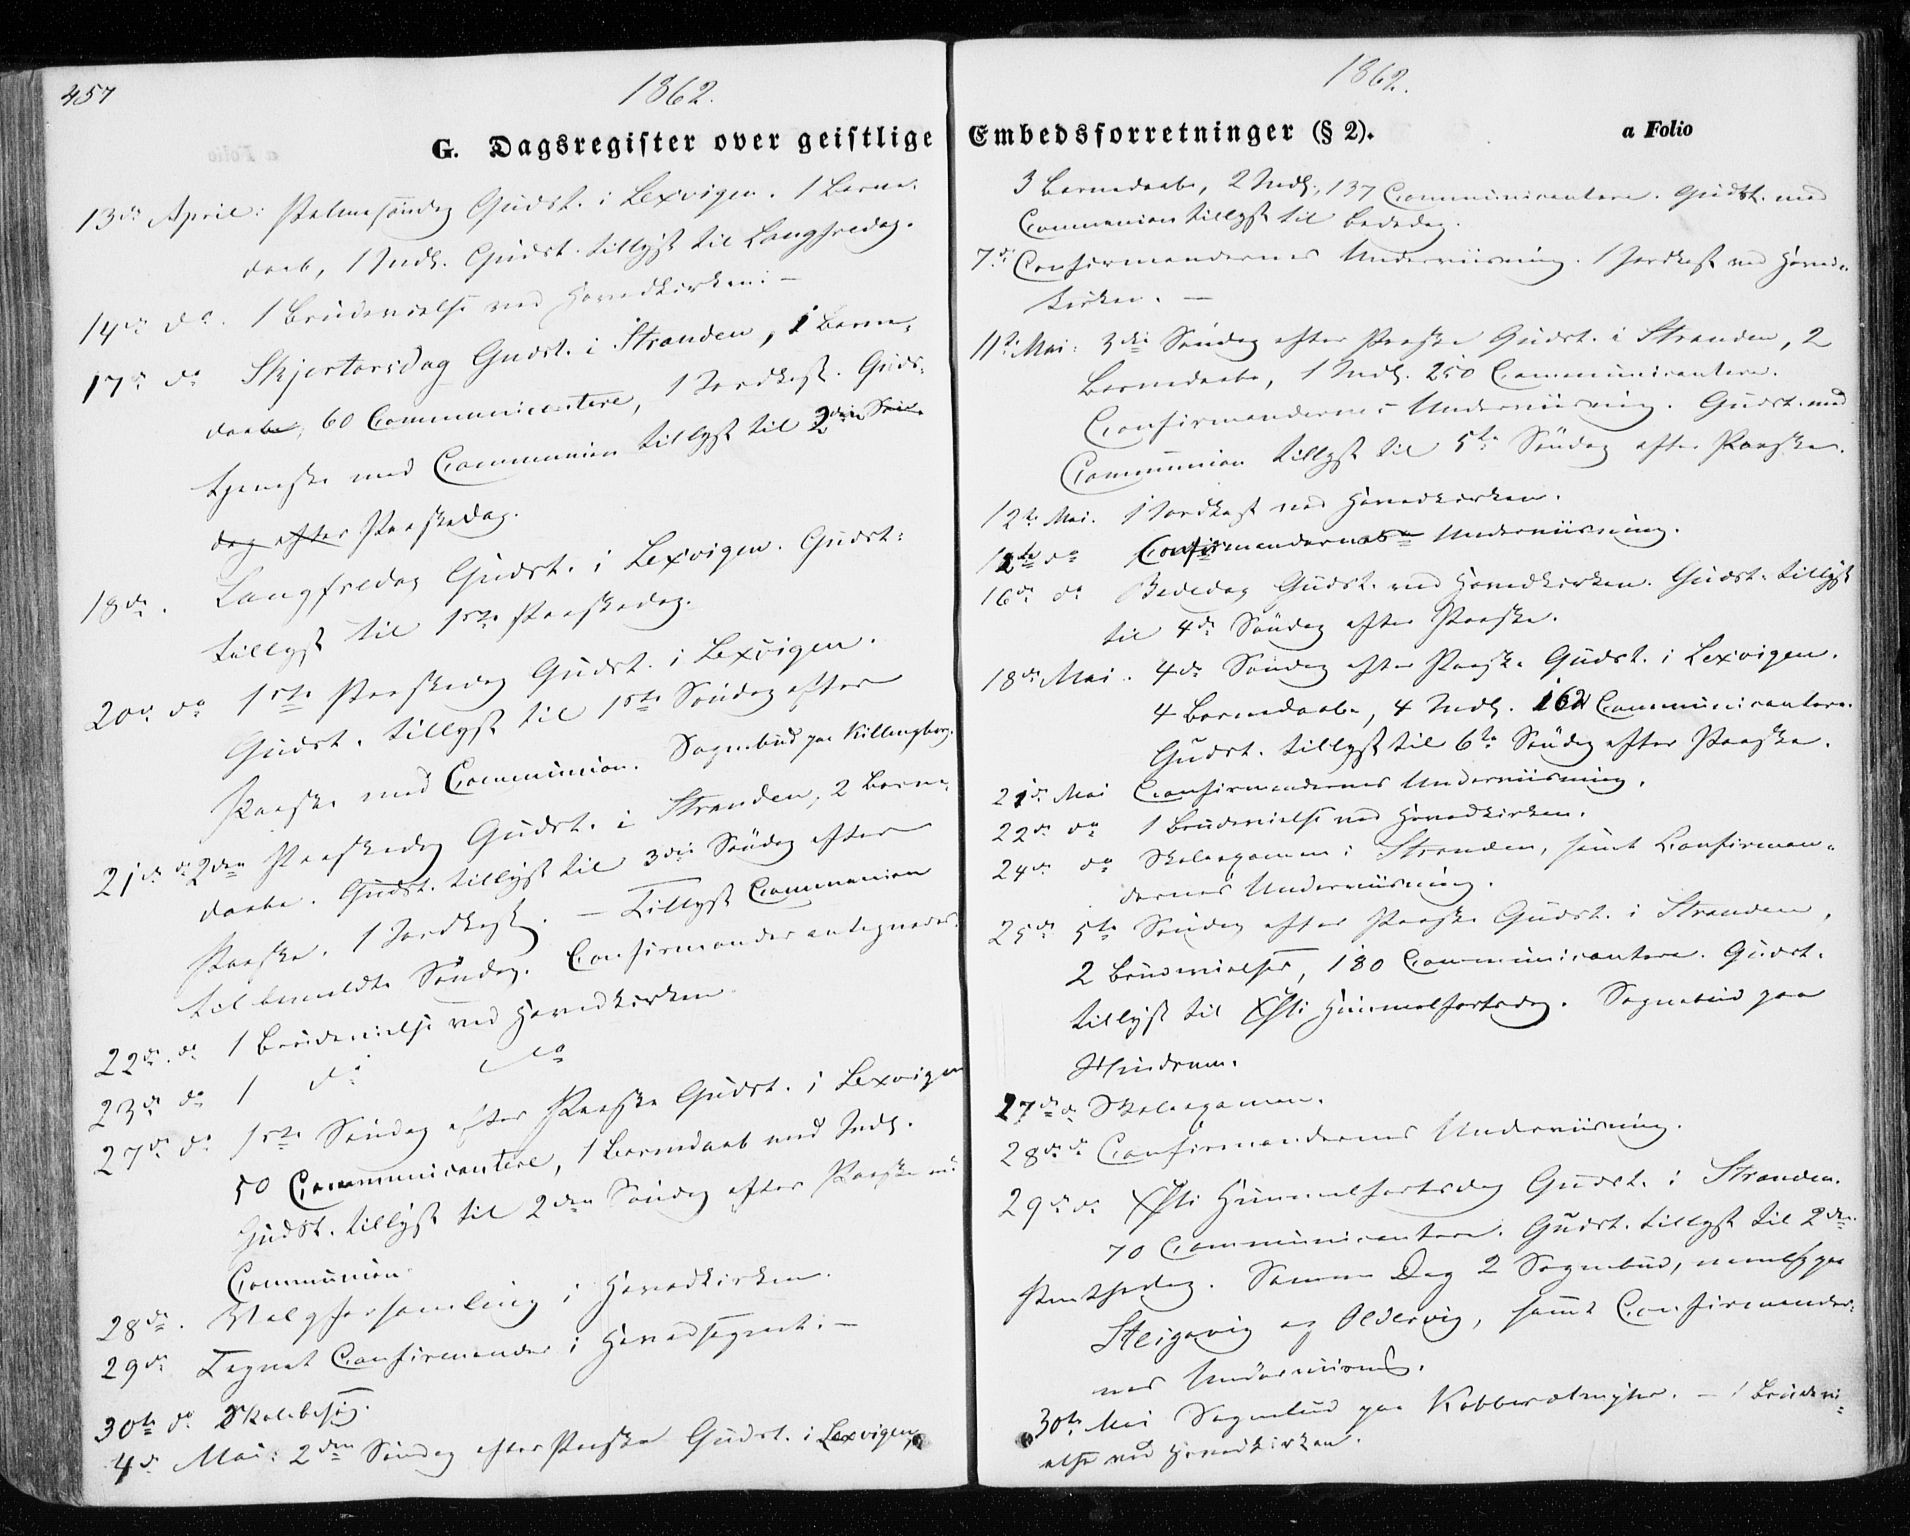 457
1862.
G. Dagsregister over geistlige
13de April: Palmesöndag Gudst. i Lexvigen. 1 Barne-
daab, 1 Indl. Gudst. tillyst til Langfredag.
14de do. 1 Brudevielse ved Hovedkirken. —
17de do Skjertorsdag Gudst. i Stranden, 1 Barne-
daab, 60 Communicantere, 1 Jordkast. Guds-
tjeneste med Communion tillyst til 2den Søn-
dag efter Paaskedag.
18de. Langfredag Gudst. i Lexvigen. Gudst.
tillyst til 1ste Paaskedag.
20de do 1ste Paaskedag Gudst. i Lexvigen.
Gudst. tillyst til 1ste Söndag efter
Paaske med Communion. Sognebud paa Killingberg.
21de do 2den Paaskedag Gudst. i Stranden, 2 Barne-
daabe. Gudst. tillyst til 3die Söndag efter
Paaske. 1 Jordkast. — Tillyst Communion
til bemeldte Söndag. Confirmander antegnedes.
22de do 1 Brudevielse ved Hovedkirken.
23de do 1 do do
27de do 1ste Söndag efter Paaske Gudst. i Lexvigen
50 Communicantere, 1 Barnedaab med Indl.
Gudst. tillyst til 2den Söndag efter Paaske m:
Communion
28de. Valgforsamling i Hovedkirken.
29de Tegnet Confirmander i Hovedsognet. —
30te do Skolebesög.
4de Mai: 2den Söndag efter Paaske Gudst. i Lexvigen,
1862.
Embedsforretninger (§ 2).
a Folio
3 Barnedaabe, 2 Indl., 137 Communicantere. Gudst. med
Communion tillyst til Bededag.
7de Confirmandernes Underviisning. 1 Jordkast ved Hoved-
kirken. —
11te Mai: 3die Söndag efter Paaske Gudst. i Stranden, 2
Barnedaabe, 1 Indl. 250 Communicantere.
Confirmandernes Underviisning. Gudst. med
Communion tillyst til 5te Söndag efter Paaske.
12te Mai. 1 Jordkast ved Hovedkirken.
12te do Confirmandernes Underviisning.
16de do Bededag Gudst. ved Hovedkirken. Gudst. tillyst
til 4de Söndag efter Paaske.
18de Mai. 4de Söndag efter Paaske Gudst. i Lexvigen.
4 Barnedaabe, 4 Indl. 162 Communicantere.
Gudst. tillyst til 6te Söndag efter Paaske.
21de Mai Confirmandernes Underviisning.
22de do 1 Brudevielse ved Hovedkirken.
24de do Skoleexamen i Stranden, samt Confirman-
dernes Underviisning.
25de 5te Söndag efter Paaske Gudst. i Stranden,
2 Brudevielser, 180 Communicantere. Gudst.
tillyst til Xsti Himmelfartsdag. Sognebud paa
Hindrum.
27de do Skoleexamen.
28de do Confirmandernes Underviisning.
29de do Xsti Himmelfartsdag Gudst. i Stranden.
70 Communicantere. Gudst. tillyst til 2den
Pintsedag. Samme Dag 2 Sognebud, nemlig paa
Steigavig og Oldervig, samt Confirmander-
nes Underviisning.
30te Mai Sognebud paa — 1 Brudevi-
else ved Hovedkirken.